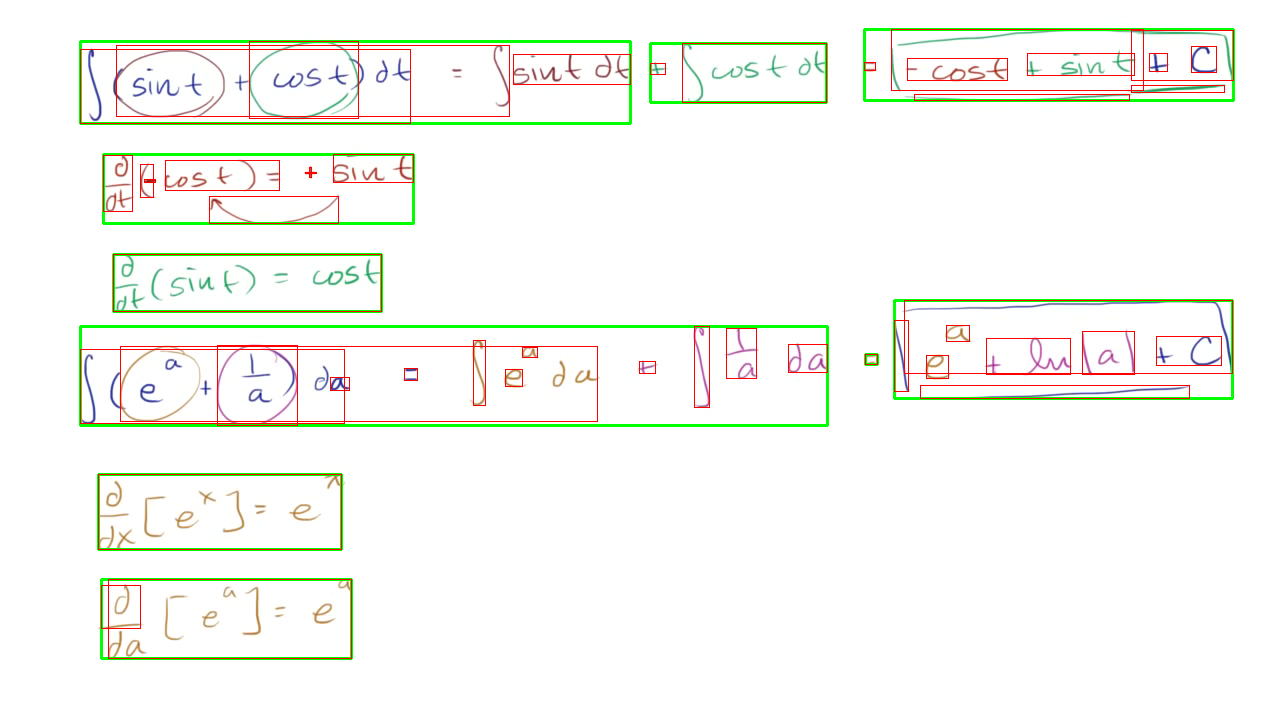 ∫(sin t + cos t) dt = ∫ sin t dt + ∫ cos t dt = - cos t + sin t + C
d/dt (- cos t) = + sin t
d/dt (sin t) = cos t
∫(e^a + 1/a) da = ∫ e^a da + ∫ 1/a da = e^a + ln |a| + C
d/dx [e^x] = e^x
d/da [e^a] = e^a